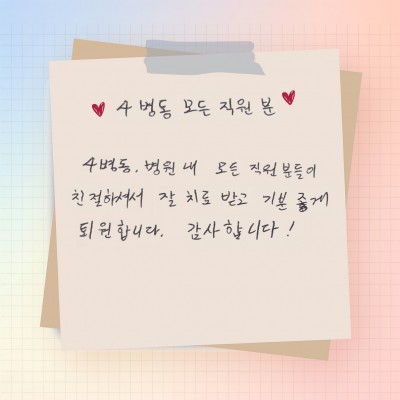 4병동 모든 직원 분
4병동, 병원 내 모든 직원분들이
친절하셔서 잘 치료 받고 기분 좋게
퇴원합니다. 감사합니다!